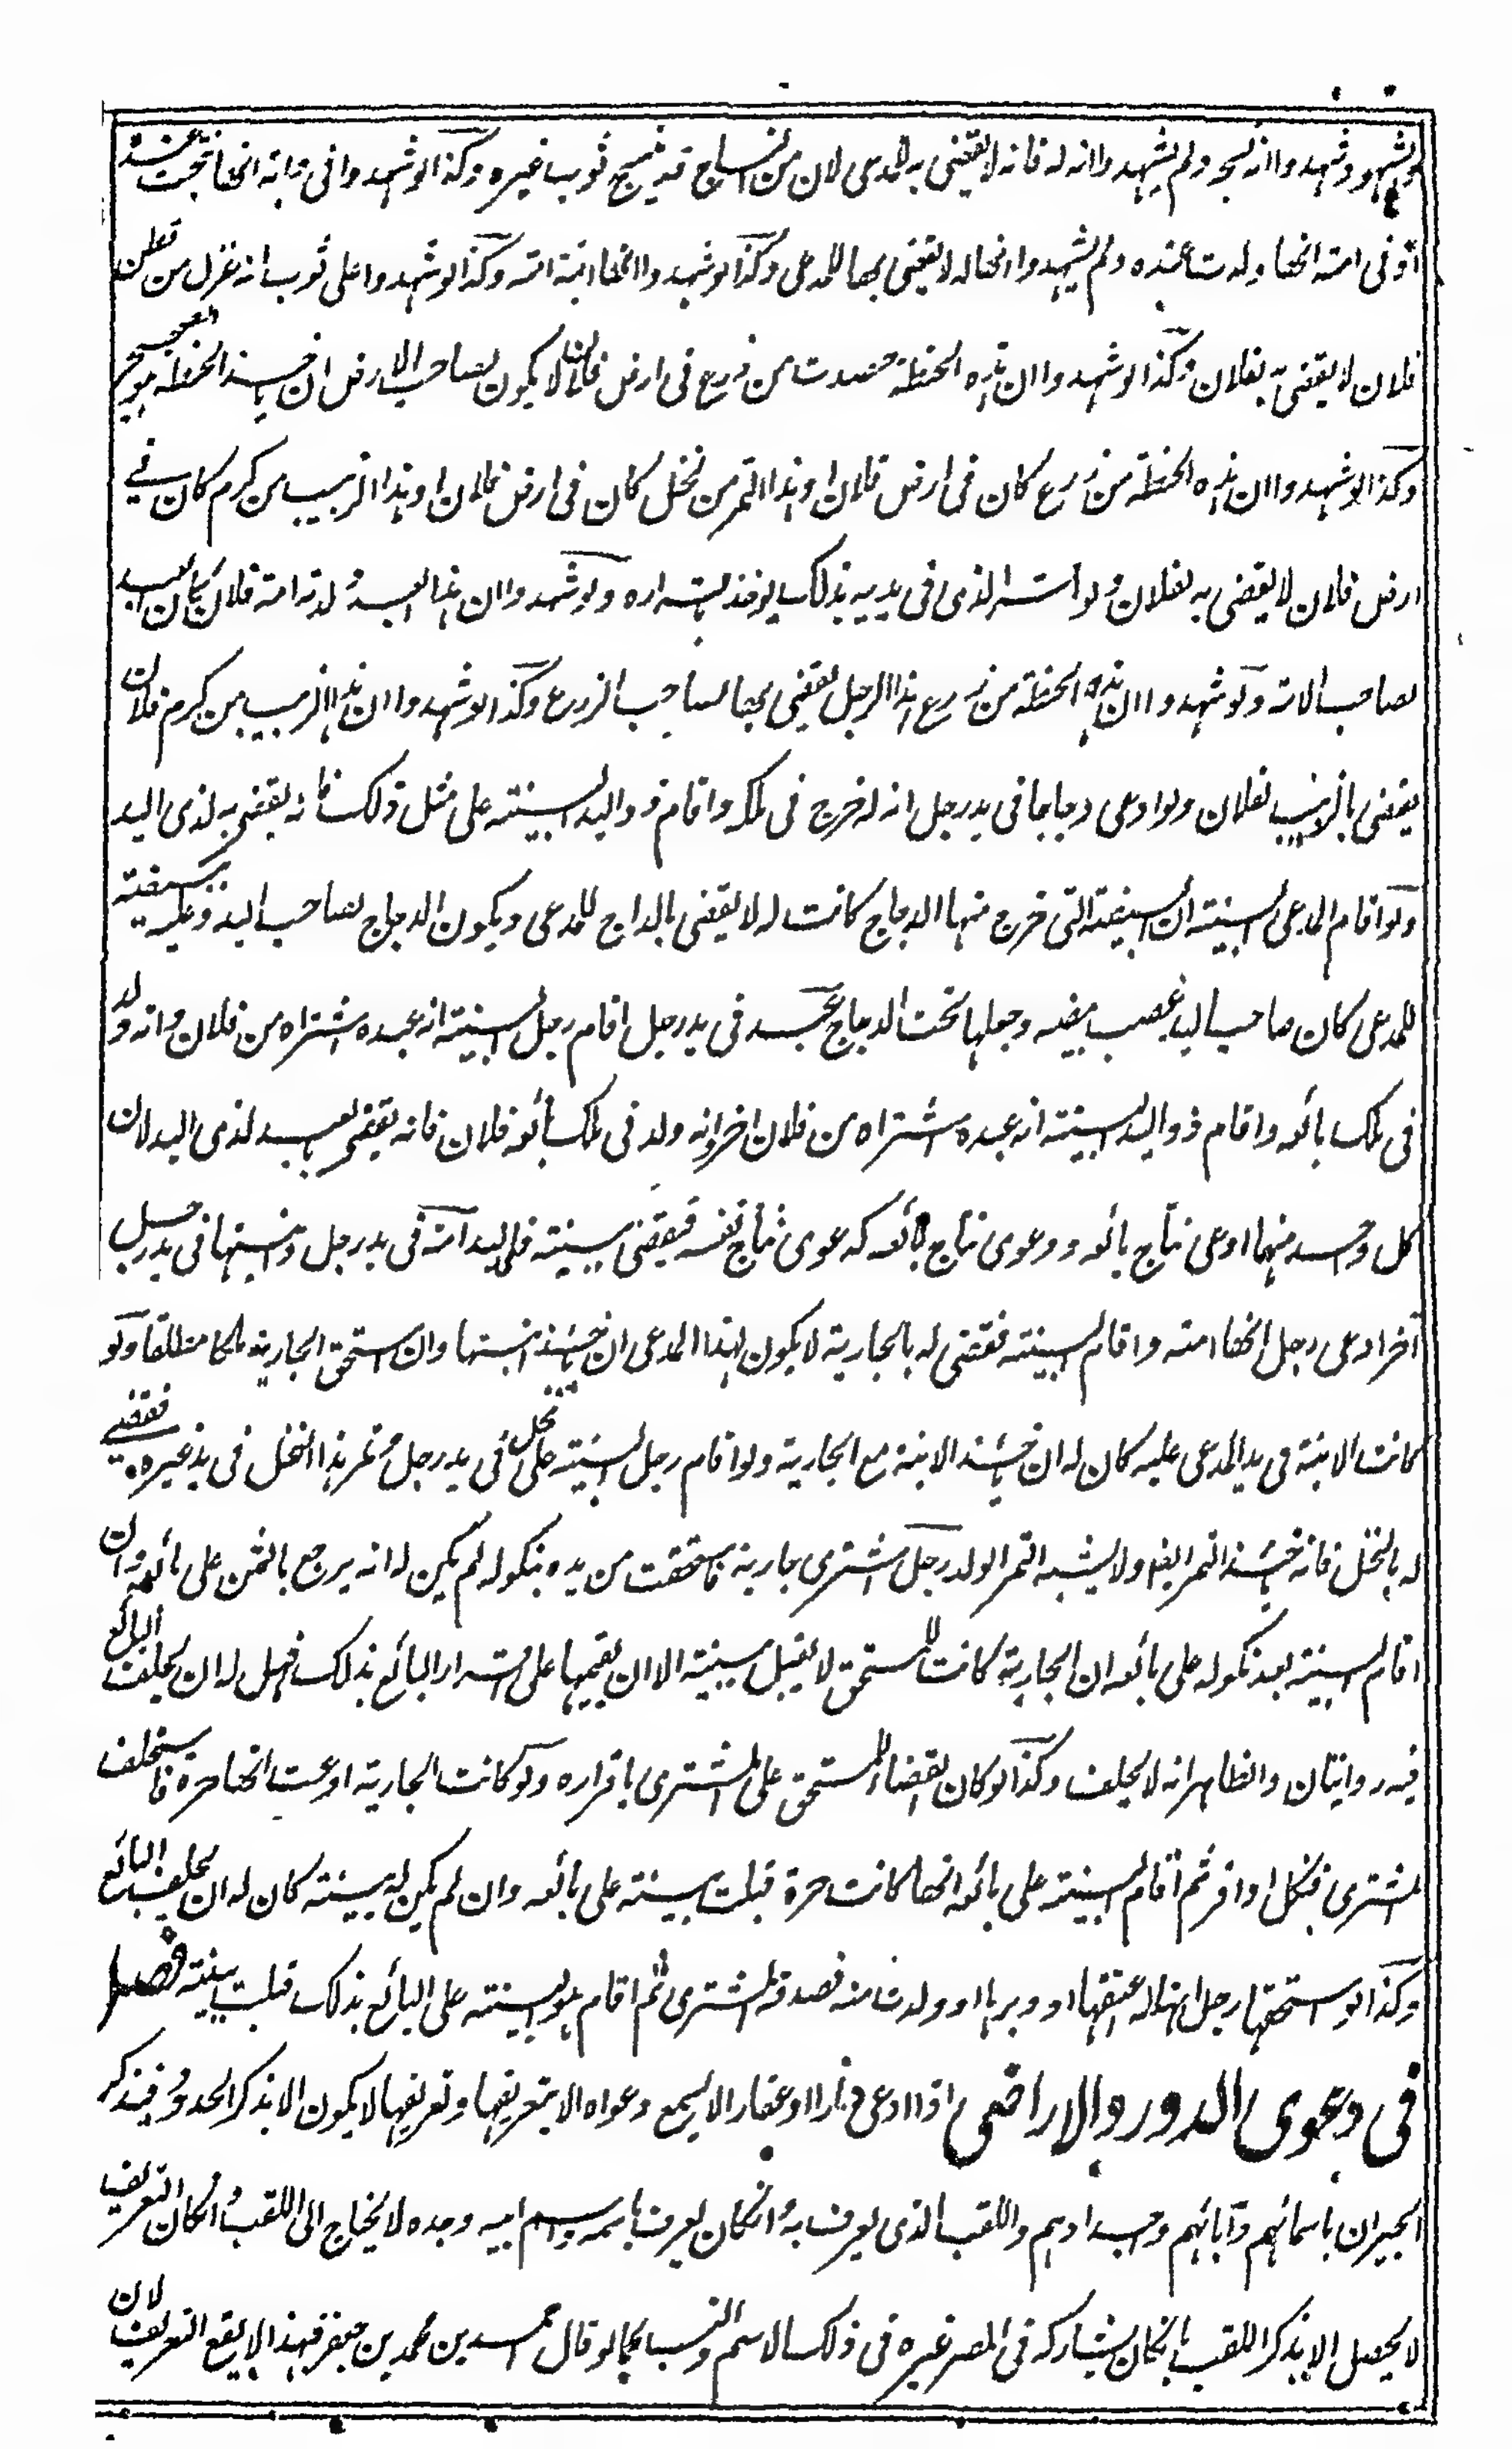 الشهود شهدوا انه نسجه ولم يشهدوا انه له فانه لا يقضى به للمدعى لان من النساج قد ينسج ثوب غيره وكذا لو شهدوا فى دابة انها نتجت عنده
او فى امة انها ولدت عنده ولم يشهدوا انها له لا يقضى بها للمدعى وكذا لو شهدوا انها ابنة امته وكذا لو شهدوا على ثوب انه غزل من قطن
فلان لا يقضى به لفلان وكذا لو شهدوا ان هذه الحنطة حصدت من زرع فى ارض فلان لا يكون لصاحب الارض ان ياخذ الحنطة هو الصحيح
وكذا لو شهدوا ان هذه الحنطة من زرع كان فى ارض فلان او هذا التمر من نخل كان فى ارض فلان او هذا الزبيب من كرم كان فى
ارض فلان لا يقضى به لفلان ولو اقر الذى فى يديه بذلك يؤخذ باقراره ولو شهدوا ان هذا العبد ولدته امة فلان كان العبد
لصاحب الامة ولو شهدوا ان هذه الحنطة من زرع هذا الرجل يقضى بها لصاحب الزرع وكذا لو شهدوا ان هذا الزبيب من كرم فلان
يقضى بالزبيب لفلان ولو ادعى دجاجا فى يد رجل انه له خرج فى ملكه واقام ذو اليد البينة على مثل ذلك فانه يقضى به لذى اليد
ولو اقام المدعى البينة ان البيضة التى خرج منها الدجاج كانت له لا يقضى بالدجاج للمدعى ويكون الدجاج لصاحب اليد وعليه بيضة
للمدعى كان صاحب اليد غصب بيضه وجعلها تحت الدجاج عبد فى يد رجل اقام رجل البينة انه عبده اشتراه من فلان وانه ولد
فى ملك بائعه واقام ذو اليد البينة انه عبده اشتراه من فلان اخر وانه ولد فى ملك بائعه فلان فانه يقضى بالعبد لذى اليد لان
كل واحد منهما ادعى نتاج بائعه ودعوى نتاج بائعه كدعوى نتاج نفسه فيقضى ببينة ذى اليد امة فى يد رجل وابنتها فى يد رجل
آخر ادعى رجل انها امته واقام البينة فقضى له بالجارية لا يكون لهذا المدعى ان ياخذ ابنتها وان استحق الجارية ملكا مطلقا ولو
كانت الابنة فى يد المدعى عليه كان له ان ياخذ الابنة مع الجارية ولو اقام رجل البينة على نخل فى يد رجل وتمر هذا النخل فى يد غيره فقضى
له بالنخل فانه ياخذ التمر ايضا ولا يشبه التمر الولد رجل اشترى جارية فاستحقت من يده بنكوله لم يكن له ان يرجع بالثمن على بائعه وان
اقام البينة بعد نكوله على بائعه ان الجارية كانت للمستحق لا يقبل بينته الا ان يقيمها على اقرار البائع بذلك فهل له ان يحلف البائع
فيه روايتان والظاهر انه لا يحلف وكذا لو كان القضاء للمستحق على المشترى باقراره ولو كانت الجارية ادعت انها حرة فاستحلف
المشترى فنكل او اقر ثم اقام البينة على بائعه انها كانت حرة قبلت بينته على بائعه وان لم يكن له بينة كان له ان يحلف البائع
وكذا لو استحقها رجل انها له اعتقها او دبرها او ولدت منه فصدقه المشترى ثم اقام هو البينة على البائع بذلك قبلت بينته فصل
فى دعوى الدور والاراضى اذا ادعى دارا او عقارا لا يسمع دعواه الا بتعريفها وتعريفها لا يكون الا بذكر الحدود فيذكر
الجيران باسمائهم وآبائهم واجدادهم واللقب الذى يعرف به وان كان يعرف باسمه واسم ابيه وجده لا يحتاج الى اللقب وان كان التعريف
لا يحصل الا بذكر اللقب بان كان يشاركه فى المصر غيره فى ذلك الاسم والنسب كما لو قال احمد بن محمد بن جعفر فهذا لا يقع التعريف لان